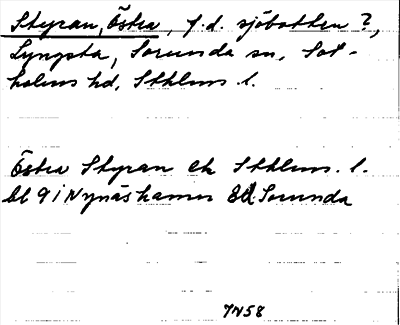 Styran, Östra, f.d. sjöbotten?,
Lyngsta, Sorunda sn, Sot-
holms hd, Sthlms l.
Östra Styran ek Sthlms. l.
bl 9 i Nynäshamn Sorunda
TN58